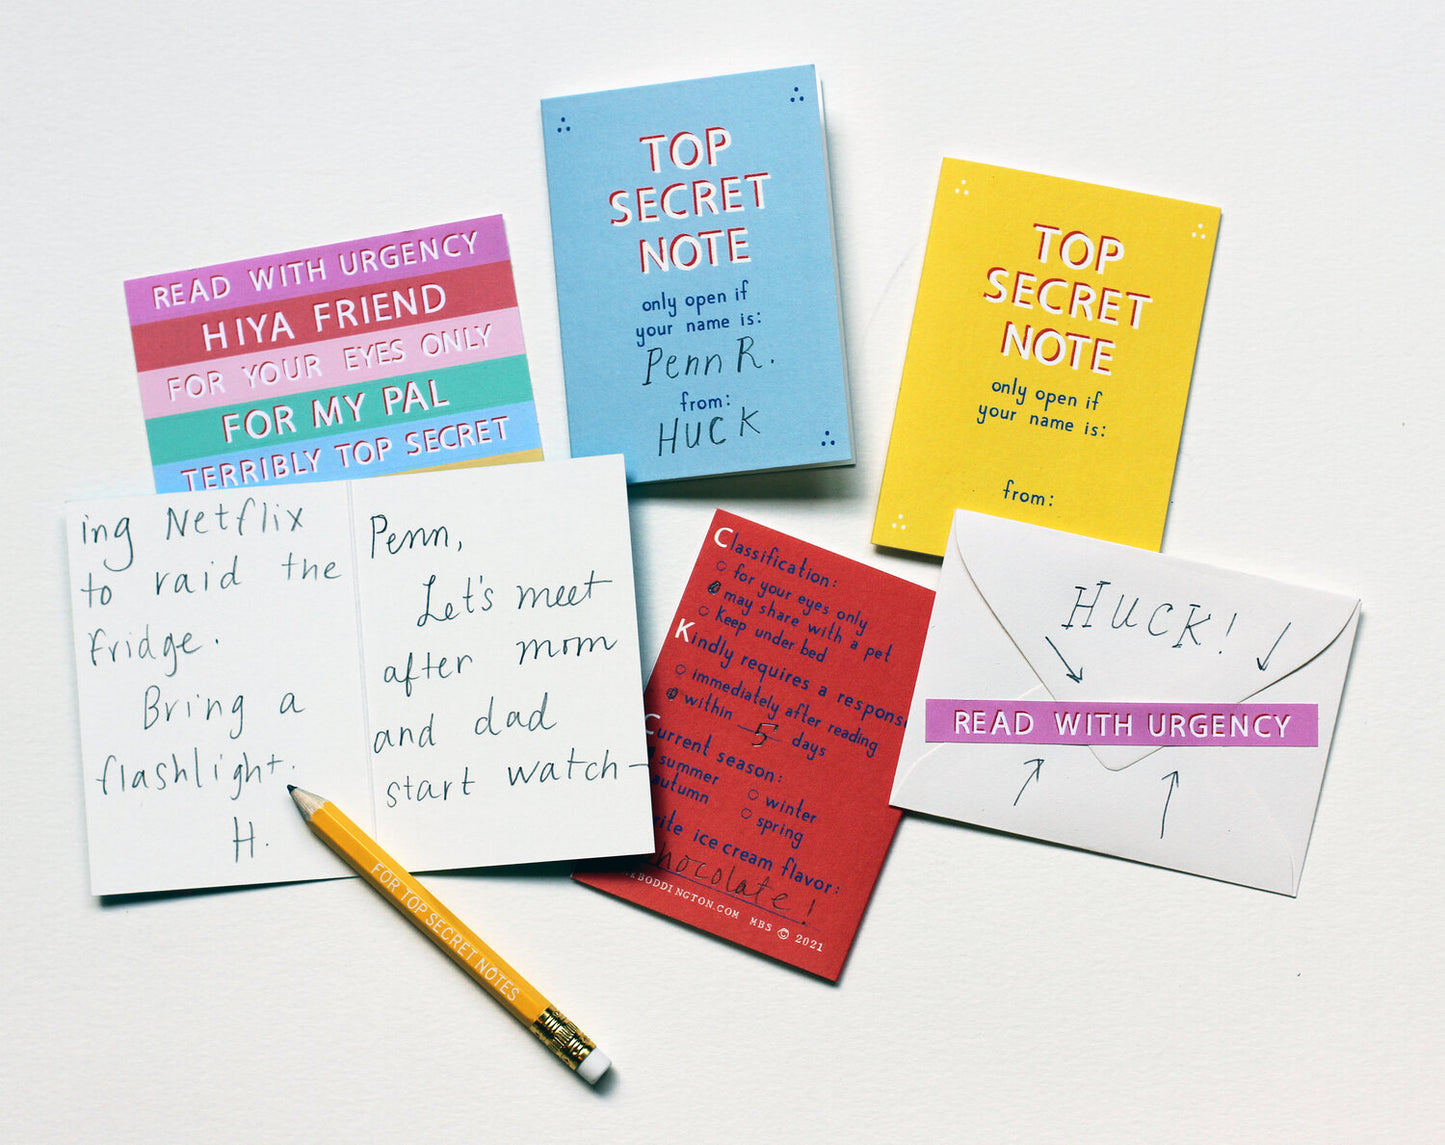 READ WITH URGENCY
HIYA FRIEND
FOR YOUR EYES ONLY
FOR MY PAL
TERRIBLY TOP SECRET
TOP
SECRET
NOTE
only open if
your name is:
Penn R.
from:
HUCK
TOP
SECRET
NOTE
only open if
your name is:
from:
ing Netflix
to raid the
fridge.
Bring a
flashlight.
H.
Penn,
Let's meet
after mom
and dad
start watch-
Classification:
for your eyes only
may share with a pet
keep under bed
Kindly requires a respons
immediately after reading
within 5 days
Current season:
summer
autumn
winter
spring
ice cream flavor:
hocolate!
BODDINGTON.COM MBS © 2021
HUCK!
READ WITH URGENCY
FOR TOP SECRET NOTES